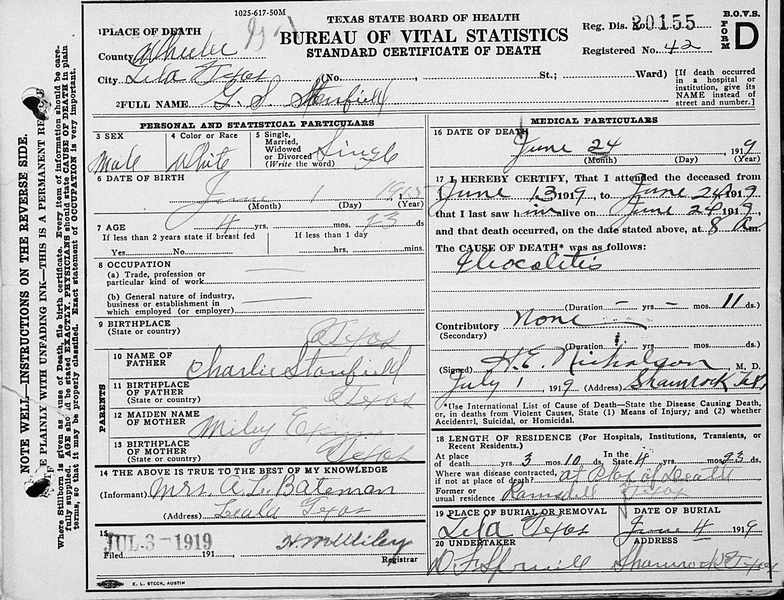 1025-617-50M
TEXAS STATE BOARD OF HEALTH
BUREAU OF VITAL STATISTICS
STANDARD CERTIFICATE OF DEATH
Reg. Dis. No. 20155
Registered No. 42
B.O.V.S.
FORM D
1 PLACE OF DEATH
County Wheeler
City Lela Texas (No. St.; Ward)
[If death occurred in a hospital or institution, give its NAME instead of street and number.]
2 FULL NAME G. S. Stanfield
PERSONAL AND STATISTICAL PARTICULARS
3 SEX Male
4 Color or Race White
5 Single, Married, Widowed or Divorced (Write the word) Single
6 DATE OF BIRTH
June 1
(Month) (Day) (Year)
7 AGE 4 yrs. mos. 23 ds.
If less than 2 years state if breast fed
Yes No
If less than 1 day
hrs. mins.
8 OCCUPATION
(a) Trade, profession or particular kind of work
(b) General nature of industry, business or establishment in which employed (or employer)
9 BIRTHPLACE
(State or country) Texas
PARENTS
10 NAME OF FATHER Charlie Stanfield
11 BIRTHPLACE OF FATHER
(State or country) Texas
12 MAIDEN NAME OF MOTHER Miley
13 BIRTHPLACE OF MOTHER
(State or country) Texas
14 THE ABOVE IS TRUE TO THE BEST OF MY KNOWLEDGE
(Informant) Mrs. A. L. Bateman
(Address) Texas
15
JUL 3 - 1919
Filed 191
Registrar
E. L. STECK, AUSTIN
MEDICAL PARTICULARS
16 DATE OF DEATH
June 24 1919
(Month) (Day) (Year)
17 I HEREBY CERTIFY, That I attended the deceased from
June 13 1919, to June 24 1919
that I last saw him alive on June 24 1919,
and that death occurred, on the date stated above, at 8 a m.
The CAUSE OF DEATH* was as follows:
Ileocolitis
(Duration yrs mos. 11 ds.)
Contributory None
(Secondary)
(Duration yrs. mos. ds.)
(Signed) H. E. Nicholson M. D.
July 1 1919 (Address) Shamrock Tex
*Use International List of Cause of Death—State the Disease Causing Death, or, in deaths from Violent Causes, State (1) Means of Injury; and (2) whether Accidental, Suicidal, or Homicidal.
18 LENGTH OF RESIDENCE (For Hospitals, Institutions, Transients, or Recent Residents.)
At place of death yrs 3 mos. 10 ds.
In the State 4 mos. 23 ds.
Where was disease contracted, if not at place of death? at Place of Death
Former or usual residence Ramsdell Texas
19 PLACE OF BURIAL OR REMOVAL
Lela Texas
DATE OF BURIAL
1919
20 UNDERTAKER
ADDRESS
Shamrock Texas
NOTE WELL—INSTRUCTIONS ON THE REVERSE SIDE.
PLAINLY WITH UNFADING INK—THIS IS A PERMANENT